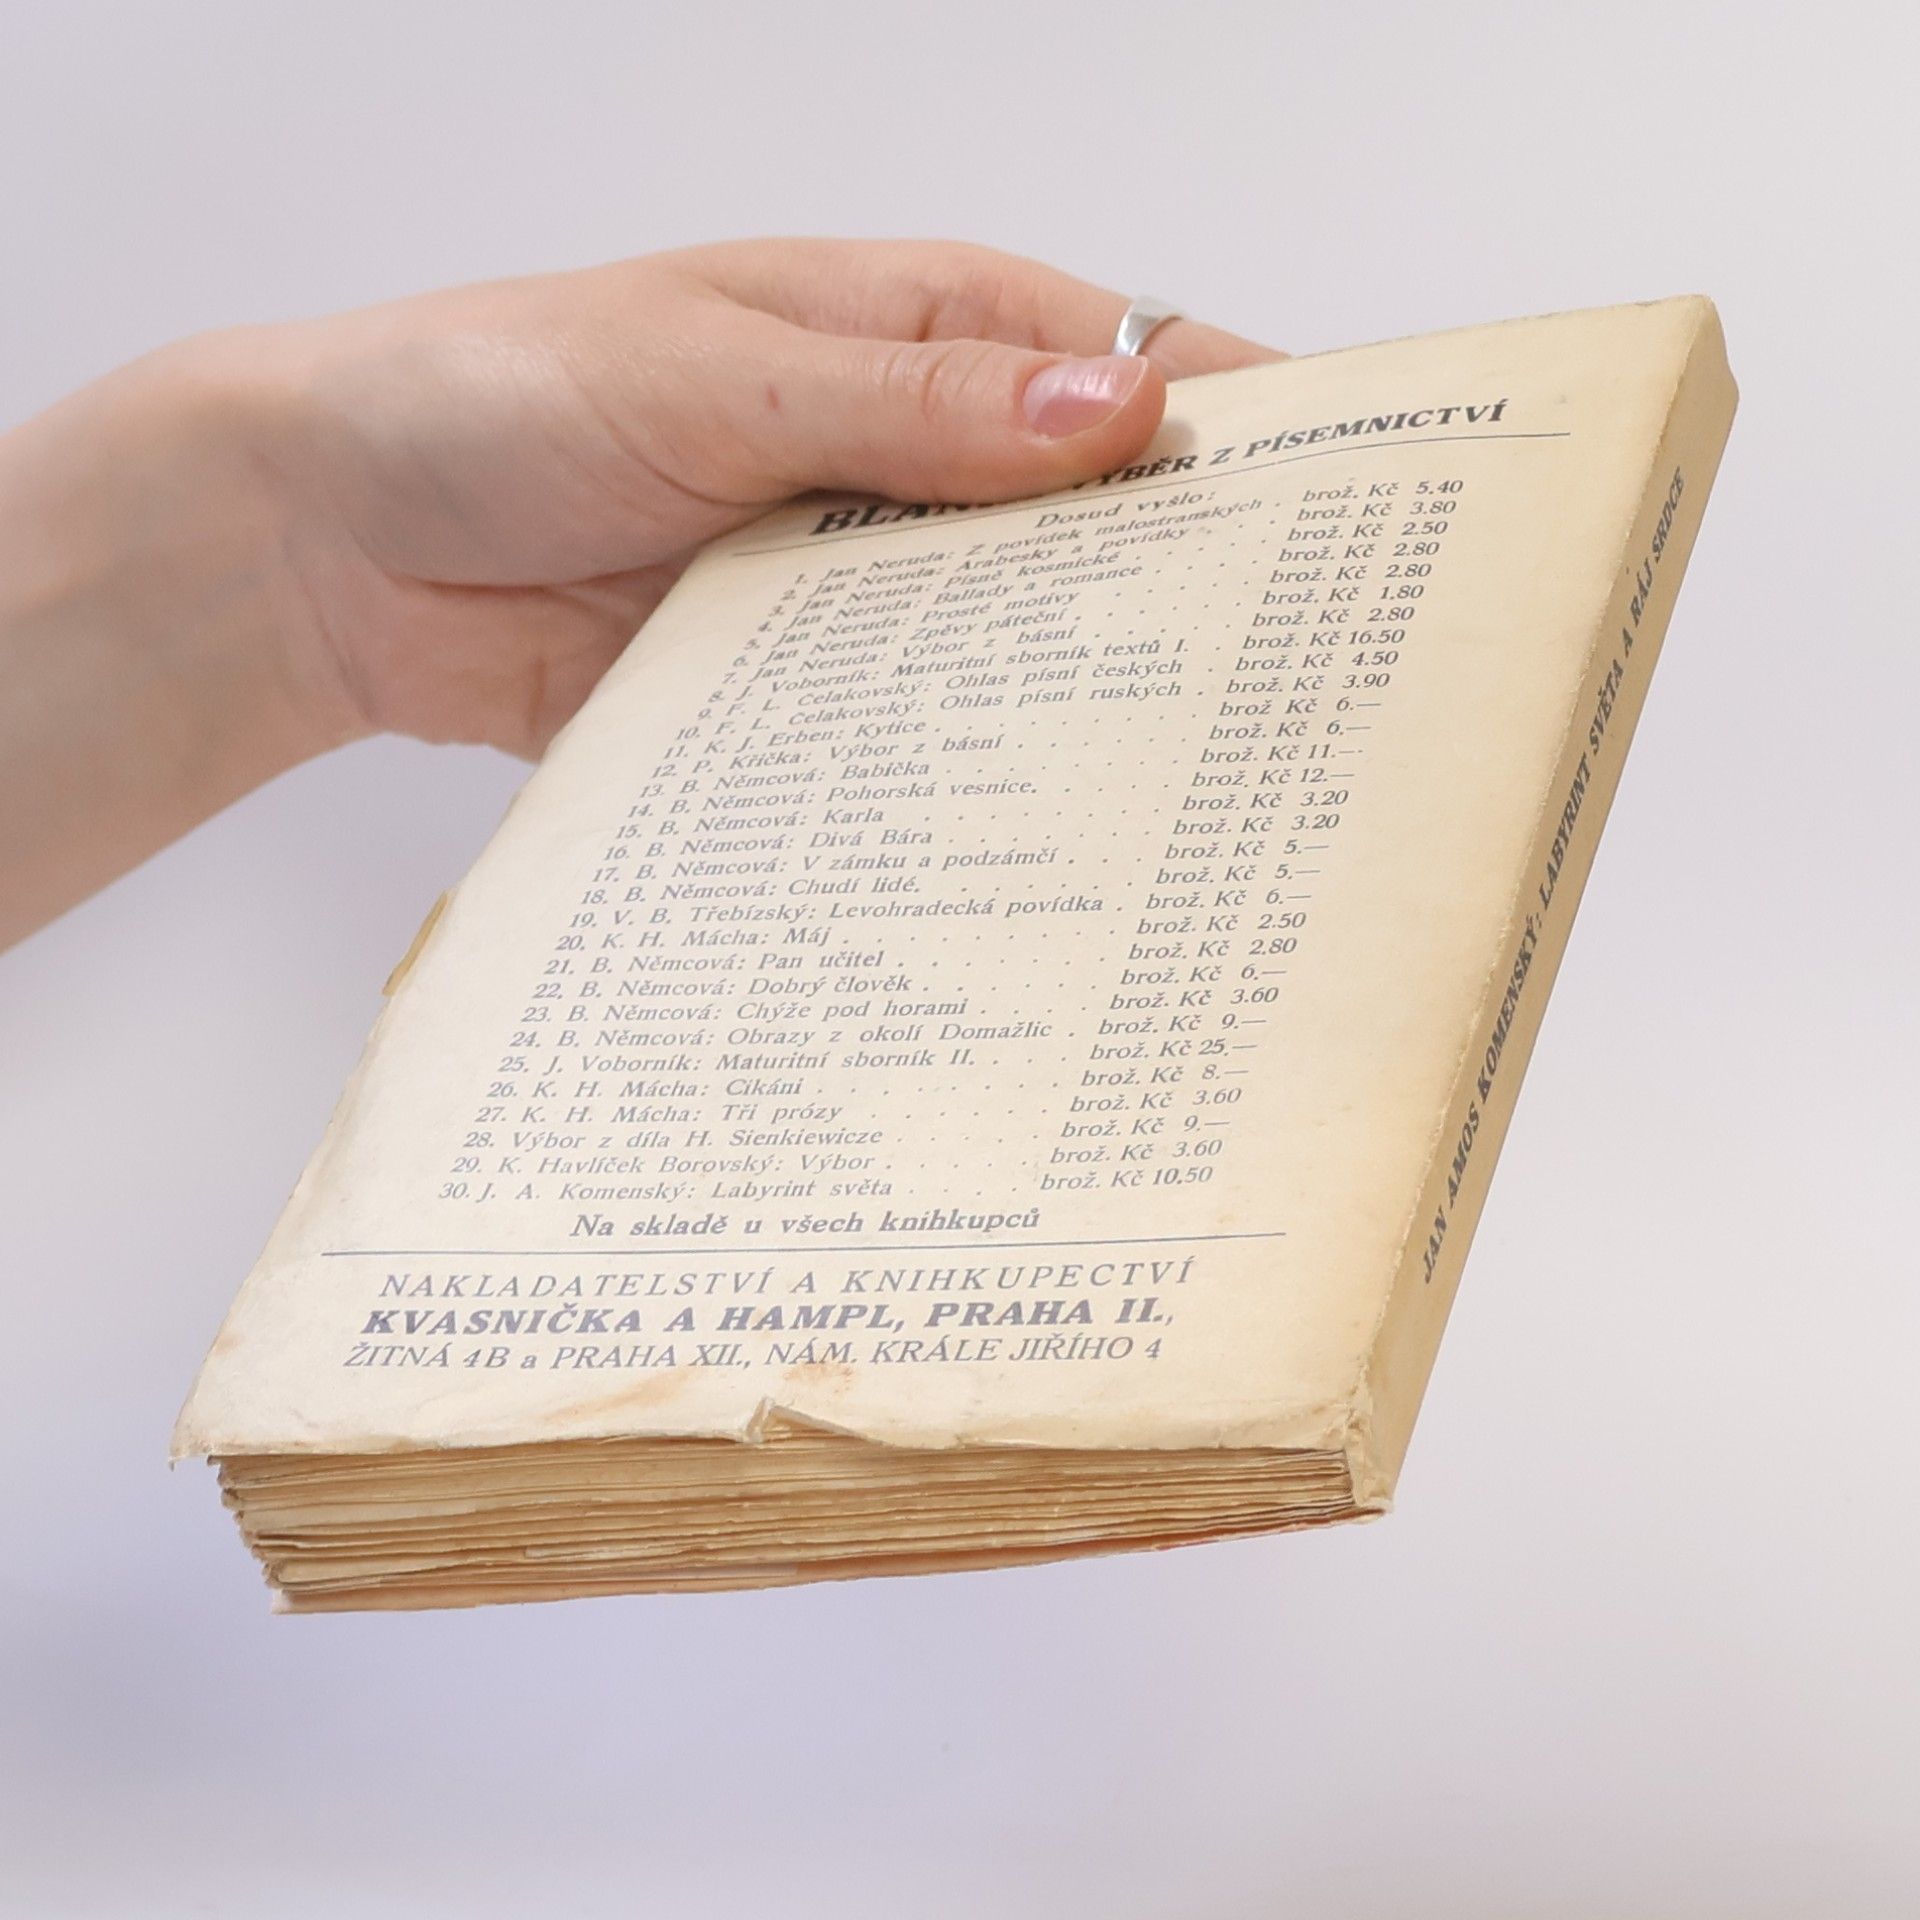 VÝBĚR Z PÍSEMNICTVÍ
Dosud vyšlo:
1. Jan Neruda: Z povídek malostranských . brož. Kč 5.40
2. Jan Neruda: Arabesky a povídky . . . brož. Kč 3.80
3. Jan Neruda: Písně kosmické . . . . . brož. Kč 2.50
4. Jan Neruda: Ballady a romance . . . . brož. Kč 2.80
5. Jan Neruda: Prosté motivy . . . . . brož. Kč 2.80
6. Jan Neruda: Zpěvy páteční . . . . . . brož. Kč 1.80
7. Jan Neruda: Výbor z básní . . . . . brož. Kč 2.80
8. J. Voborník: Maturitní sborník textů I. . brož. Kč 16.50
9. F. L. Čelakovský: Ohlas písní českých . brož. Kč 4.50
10. F. L. Čelakovský: Ohlas písní ruských . brož. Kč 3.90
11. K. J. Erben: Kytice . . . . . . . . brož Kč 6.—
12. P. Křička: Výbor z básní . . . . . . brož. Kč 6.—
13. B. Němcová: Babička . . . . . . . brož. Kč 11.—
14. B. Němcová: Pohorská vesnice. . . . . brož. Kč 12.—
15. B. Němcová: Karla . . . . . . . . brož. Kč 3.20
16. B. Němcová: Divá Bára . . . . . . . brož. Kč 3.20
17. B. Němcová: V zámku a podzámčí . . . brož. Kč 5.—
18. B. Němcová: Chudí lidé. . . . . . . brož. Kč 5.—
19. V. B. Třebízský: Levohradecká povídka . brož. Kč 6.—
20. K. H. Mácha: Máj . . . . . . . . . brož. Kč 2.50
21. B. Němcová: Pan učitel . . . . . . . brož. Kč 2.80
22. B. Němcová: Dobrý člověk . . . . . . brož. Kč 6.—
23. B. Němcová: Chýže pod horami . . . . brož. Kč 3.60
24. B. Němcová: Obrazy z okolí Domažlic . brož. Kč 9.—
25. J. Voborník: Maturitní sborník II. . . . brož. Kč 25.—
26. K. H. Mácha: Cikáni . . . . . . . . brož. Kč 8.—
27. K. H. Mácha: Tři prózy . . . . . brož. Kč 3.60
28. Výbor z díla H. Sienkiewicze . . . . . brož. Kč 9.—
29. K. Havlíček Borovský: Výbor . . . . . brož. Kč 3.60
30. J. A. Komenský: Labyrint světa . . . . brož. Kč 10.50
Na skladě u všech knihkupců
NAKLADATELSTVÍ A KNIHKUPECTVÍ
KVASNIČKA A HAMPL, PRAHA II.,
ŽITNÁ 4B a PRAHA XII., NÁM. KRÁLE JIŘÍHO 4
JAN AMOS KOMENSKÝ: LABYRINT SVĚTA A RÁJ SRDCE